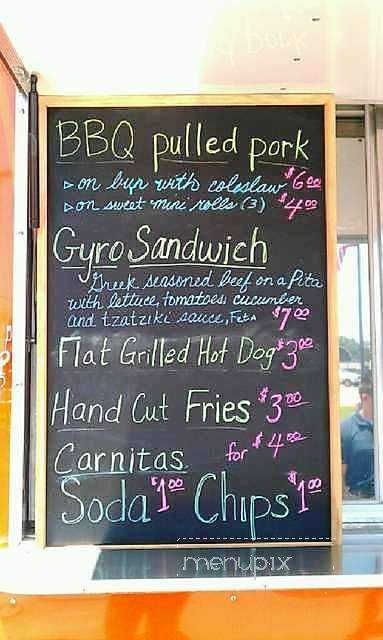 BBQ pulled pork
▷ on bun with coleslaw $6.00
▷ on sweet mini rolls (3) $4.00
Gyro Sandwich
Greek seasoned beef on a Pita
with lettuce, tomatoes cucumber
and tzatziki sauce, Feta $7.00
Flat Grilled Hot Dog $3.00
Hand Cut Fries $3.00
Carnitas for $4.00
Soda $1.00 Chips $1.00
menupix